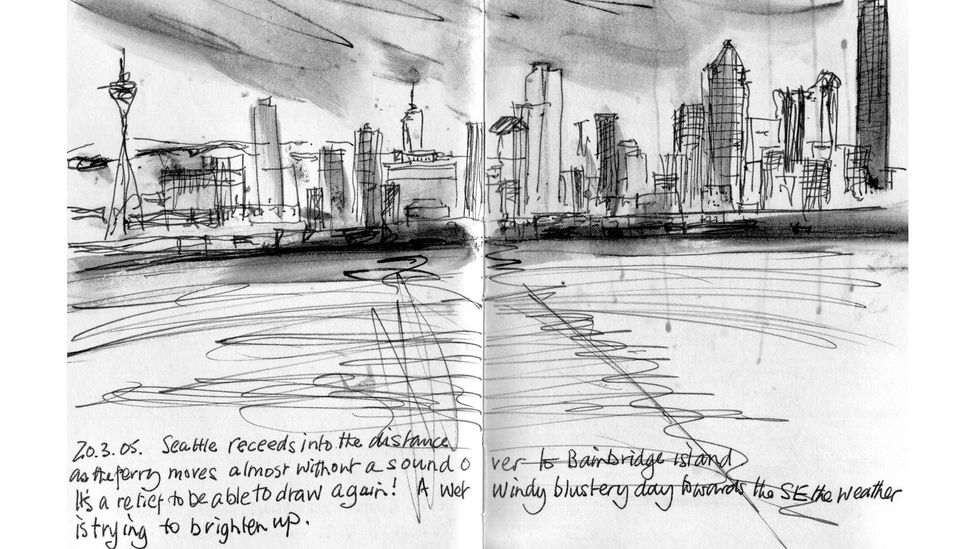 20.3.05. Seattle receeds into the distance
as the ferry moves almost without a sound over to Bainbridge island
It's a relief to be able to draw again! A wet windy blustery day towards the SE the weather
is trying to brighten up.